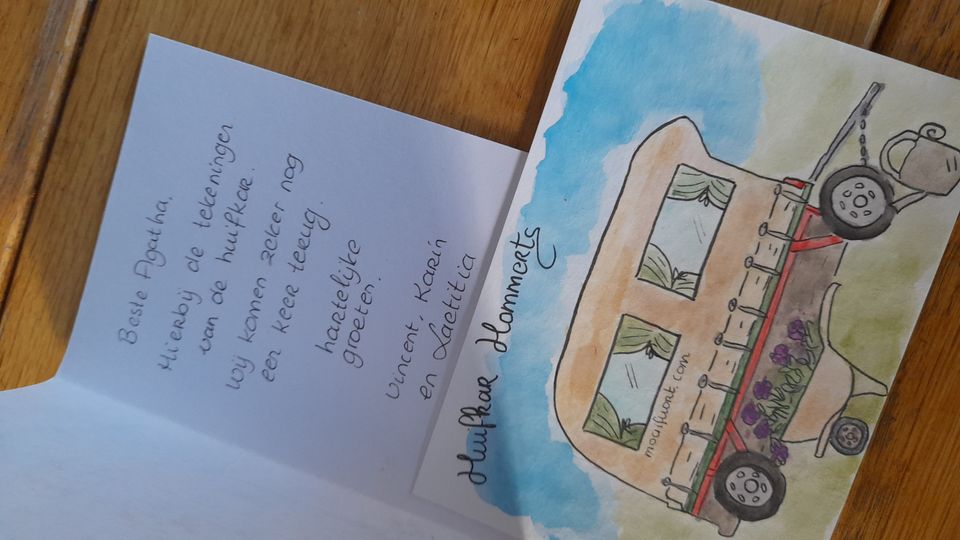 Beste Agatha,
Hierbij de tekeningen
van de huifkar.
Wij komen zeker nog
een keer terug.
hartelijke
groeten.
Vincent, Karin
en Laetitia
Huifkar Hommerts
mooisfuort.com